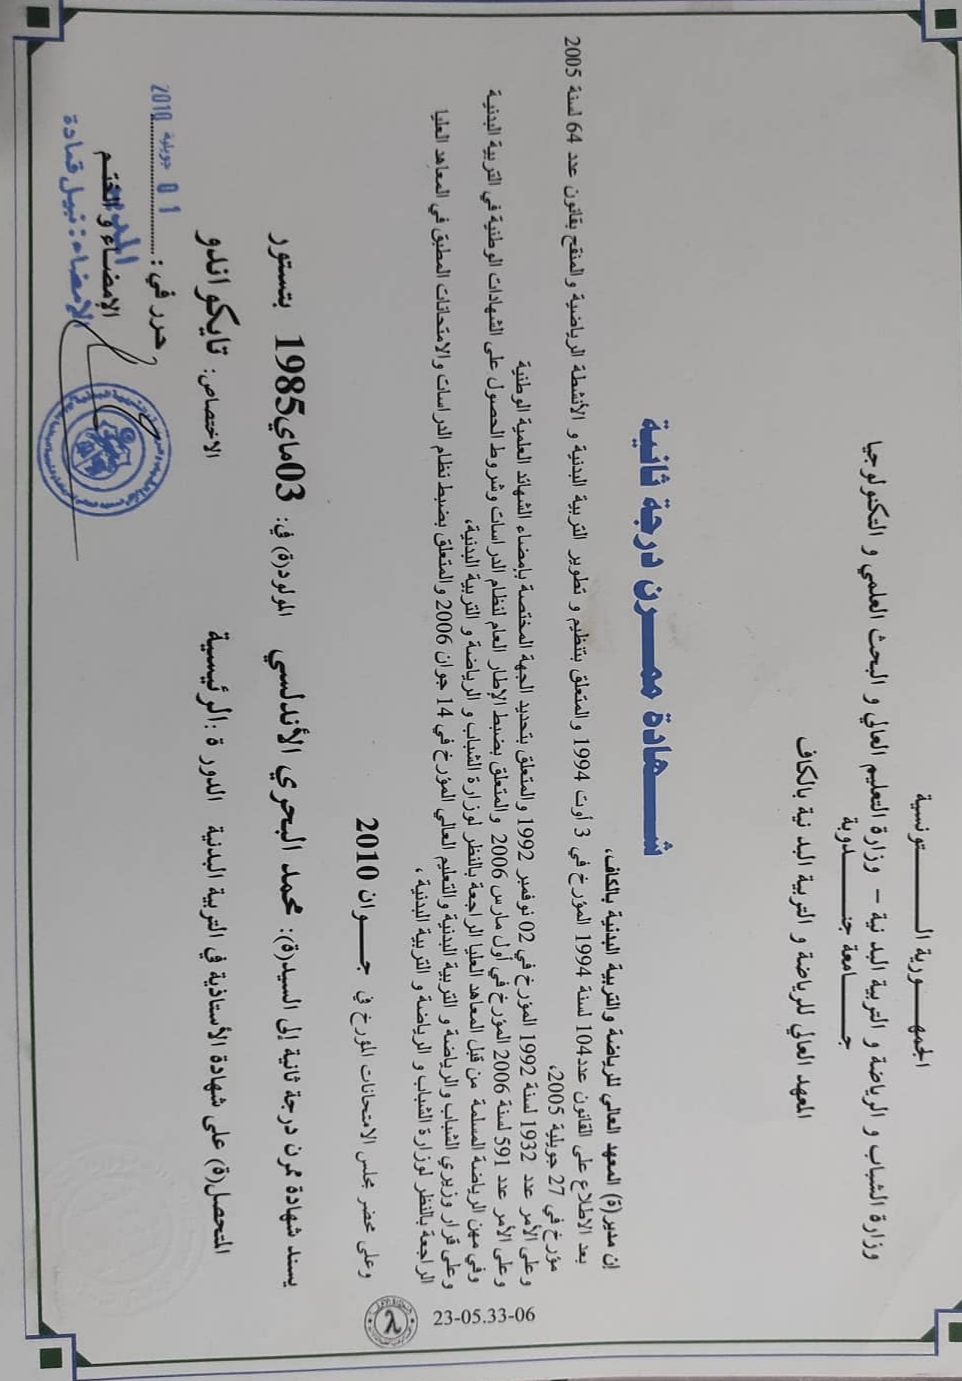 الجمهورية التونسية
وزارة الشباب و الرياضة و التربية البدنية – وزارة التعليم العالي و البحث العلمي و التكنولوجيا
جامعة جندوبة
المعهد العالي للرياضة و التربية البدنية بالكاف
شهادة ممرن درجة ثانية
إن مدير(ة) المعهد العالي للرياضة والتربية البدنية بالكاف،
بعد الاطلاع على القانون عدد104 لسنة 1994 المؤرخ في 3 أوت 1994 والمتعلق بتنظيم و تطوير التربية البدنية و الأنشطة الرياضية والمنقح بقانون عدد 64 لسنة 2005
مؤرخ في 27 جويلية 2005،
وعلى الأمر عدد 1932 لسنة 1992 المؤرخ في 02 نوفمبر 1992 والمتعلق بتحديد الجهة المختصة بإمضاء الشهائد العلمية الوطنية
وعلى الأمر عدد 591 لسنة 2006 المؤرخ في أول مارس 2006 والمتعلق بضبط الإطار العام لنظام الدراسات وشروط الحصول على الشهادات الوطنية في التربية البدنية
وفي مهن الرياضة المسلمة من قبل المعاهد العليا الراجعة بالنظر لوزارة الشباب و الرياضة و التربية البدنية،
وعلى قرار وزيري الشباب والرياضة و التربية البدنية والتعليم العالي المؤرخ في 14 جوان 2006 والمتعلق بضبط نظام الدراسات والامتحانات المطبق في المعاهد العليا
الراجعة بالنظر لوزارة الشباب و الرياضة و التربية البدنية ،
وعلى محضر مجلس الامتحانات المؤرخ في جوان 2010
يسند شهادة ممرن درجة ثانية إلى السيد(ة): محمد البحري الأندلسي المولود(ة) في: 03ماي1985 بتستور
المتحصل(ة) على شهادة الأستاذية في التربية البدنية الدورة :الرئيسية الاختصاص: تايكواندو
حرر في : 01 جويلية 2010
الإمضاء والختم
المدير
الإمضاء: نبيل قمادة
23-05.33-06